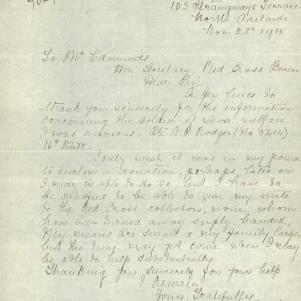 103 Strangways Terrace
North Adelaide
Nov. 22nd 1918
To Mr Edmunds
Hon Secretary Red Cross Bureau
Dear Sir
A few lines to
thank you sincerely for the information
concerning the soldier of whose welfare
I was anxious. Pte A. P. Rodger (No 6414)
16th Batt.
I only wish it was in my power
to enclose a donation, perhaps later on
I may be able to do so, but I have to
be content to be able to give my mite
to the Red Cross collectors, none whom
have been turned away empty handed.
My means are small & my family large,
but the time may yet come when I may
be able to help substantially.
Thanking you sincerely for your help
I remain
Yours Gratefully